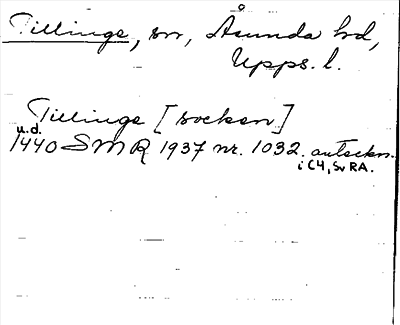 Tillinge, sn, Åsunda hd,
Upps. l.
Tillinge [socken]
u.d.
1440 SMR 1937 nr. 1032. anteckn.
i C4, Sv RA.